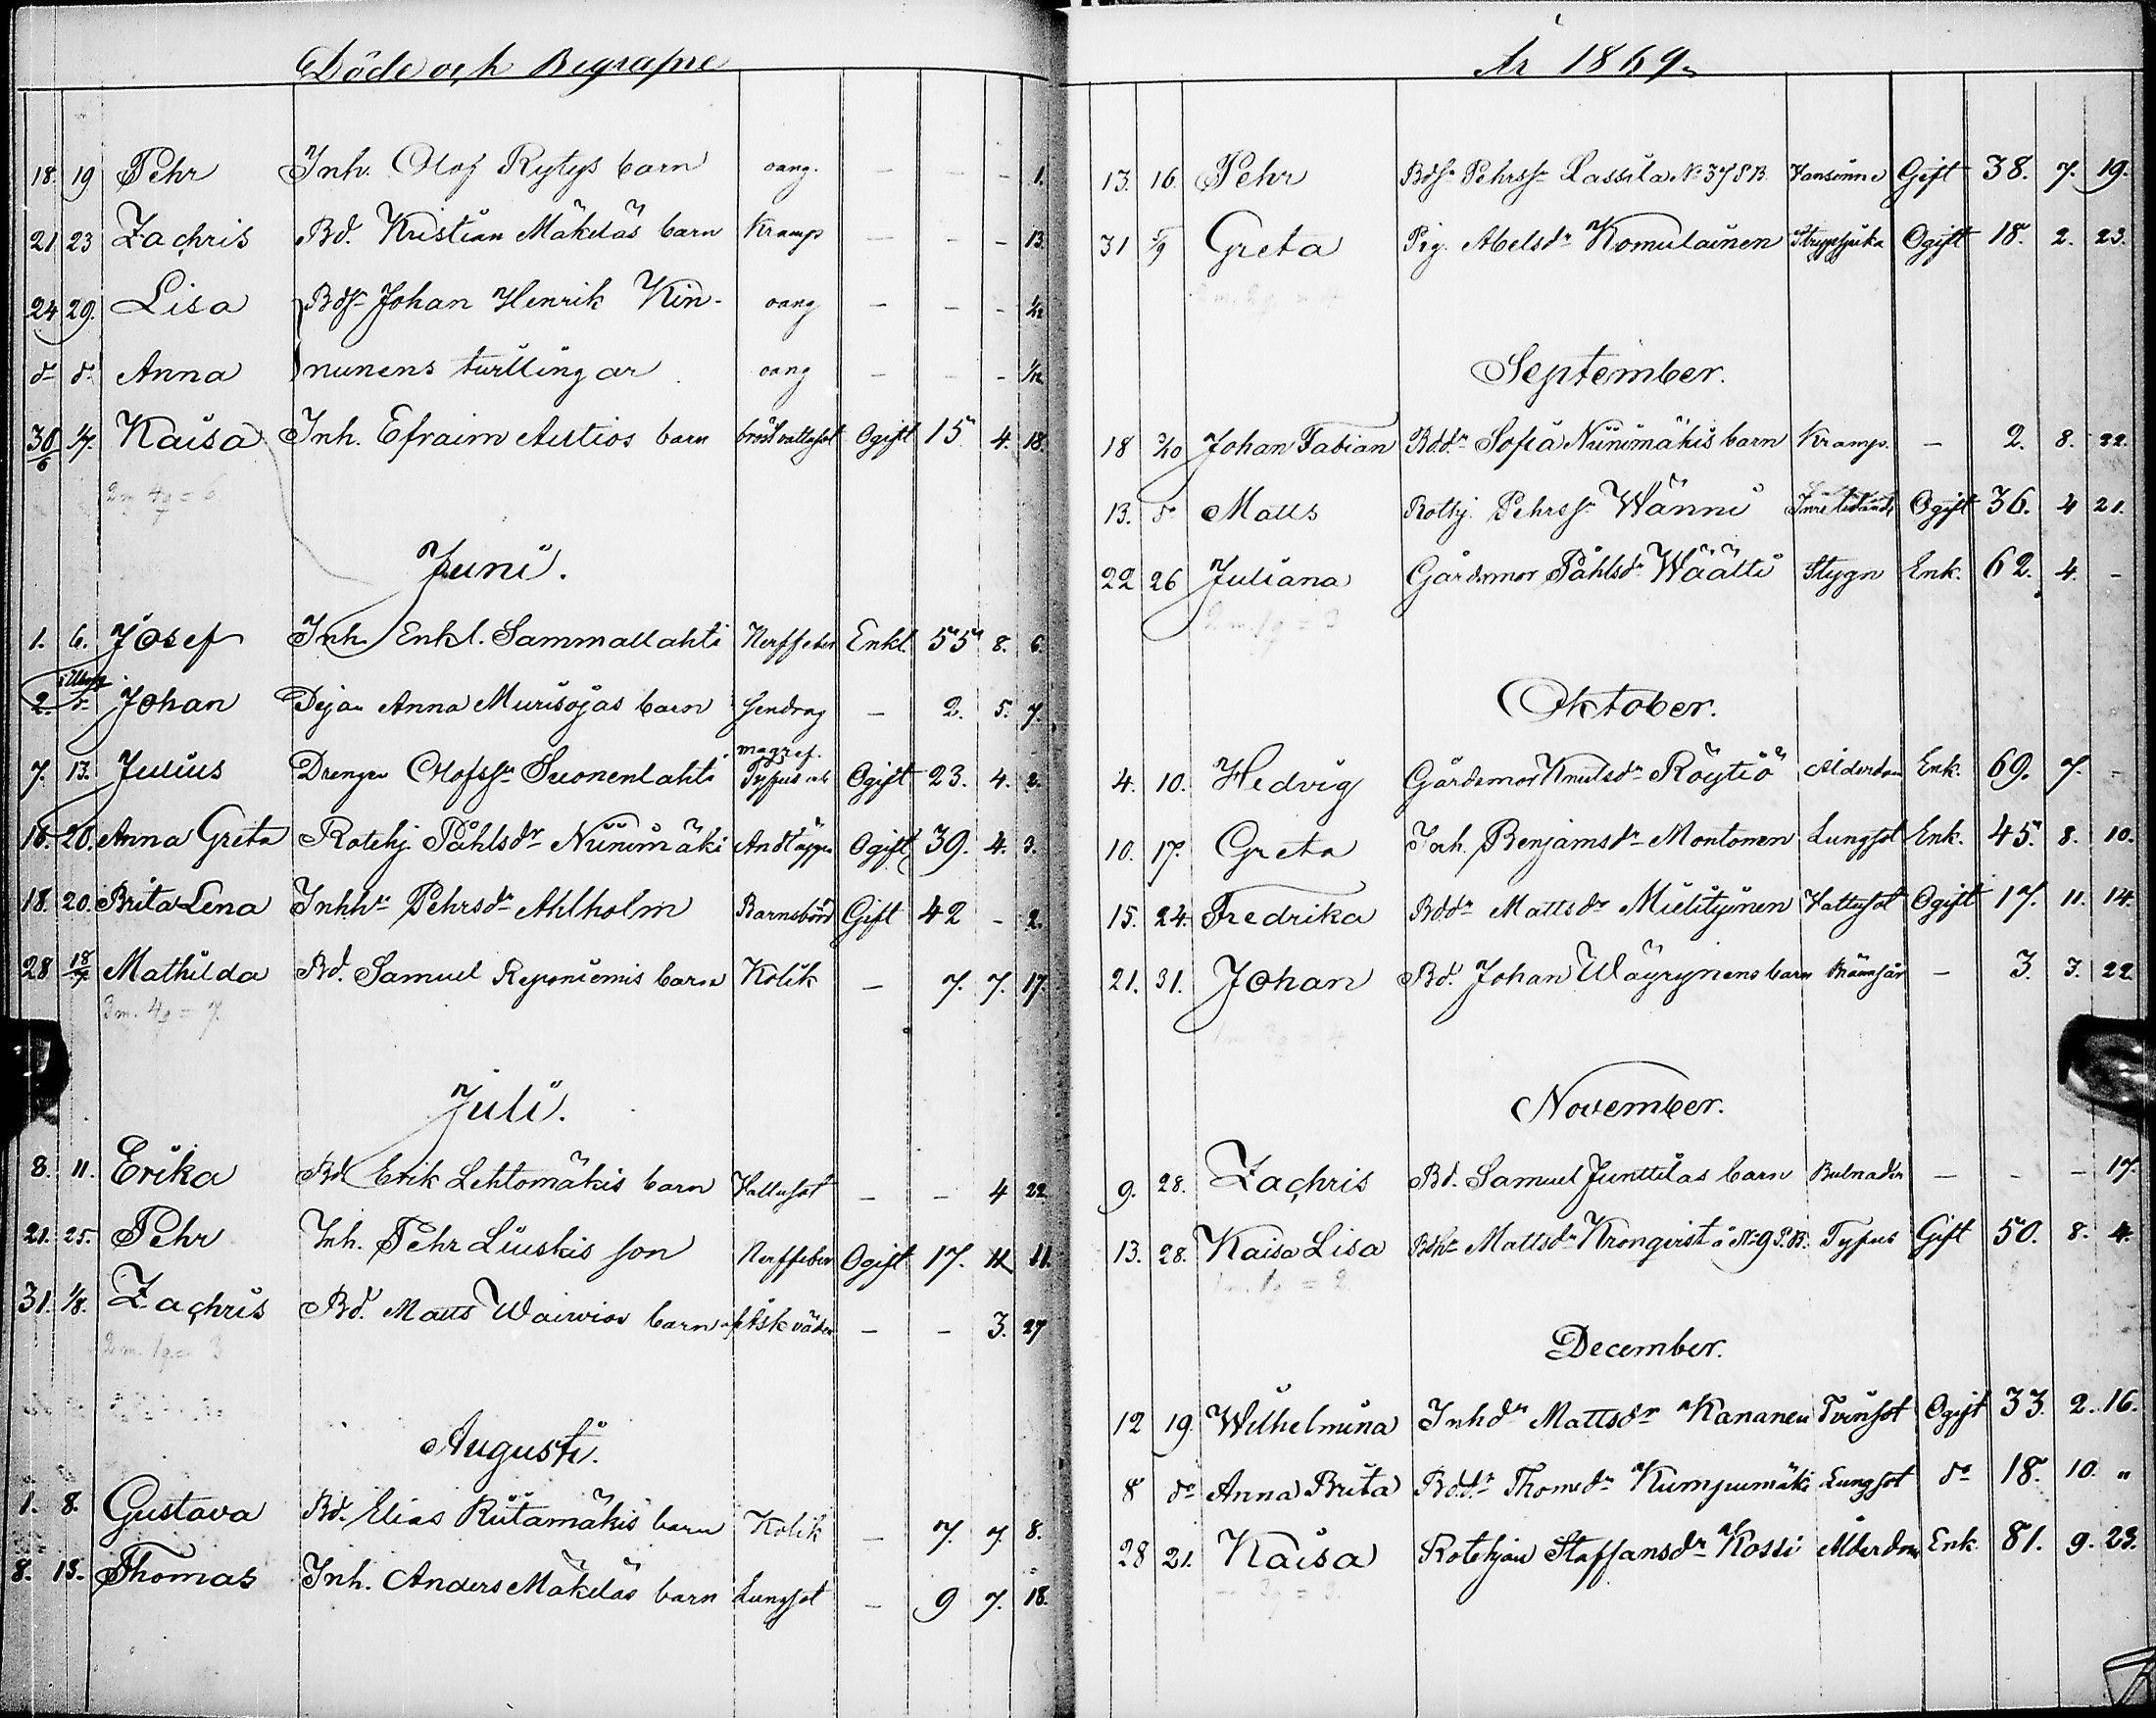 Döde och Begrafne
18. 19 Pehr Inh. Olof Rytys barn oang. - - - 1.
21 23 Zachris Bd. Kristian Mäkeläs barn Kramp - - - 13.
24 29. Lisa Bdsn Johan Henrik Kin- oang - - - 1/2
do do Anna nunens tvillingar oang - - - 1/2
30/6 4/7. Kaisa Inh. Efraim Autios barn bröstvattusot Ogift 15 4. 18.
2m 4q = 6
Juni.
1. 6. Josef Inh. Enkl. Sammallahti Nerffeber Enkl. 55 8. 6.
2. do Johan Dejan Anna Murisojas barn - 2. 5. 7.
7. 13. Julius Drengen Olofssn Suonenlahti Typus Ogift 23. 4. 2.
18. 20. Anna Greta Rotehj. Påhlsdr Niinimäki Andtäppa Ogift 39. 4. 3.
18. 20. Brita Lena Inhhu Pehrsdr Ahlholm Barnsbörd Gift 42 - 2.
28 18/7 Mathilda Bd. Samuel Reponiemis barn Kolik - 7. 7. 17.
3m. 4q = 7.
Juli.
8. 11. Erika Bd Erik Lehtomäkis barn Vattusot - - 4 22
21. 25. Pehr Inh. Pehr Liuskis son Nerffeber Ogift 17. 11 11.
31. 1/8. Zachris Bd. Matts Waiwios barn af Åskväder - - 3. 27
2m. 1q = 3
Augusti.
1. 8. Gustava Bd. Elias Riitamäkis barn Kolik - 7. 7. 8.
8. 15. Thomas Inh. Anders Mäkeläs barn Lungsot - 9 7. 18.
År 1869.
13. 16. Pehr Bdsn Pehrssn Lassila No 37 Vansinne Gift 38. 7. 19.
31 5/9 Greta Pig. Abelsdr Komulainen Strypsjuka Ogift 18. 2. 23.
September.
18 3/10 Johan Fabian Bd.dr Sofia Niinimäkis barn Kramp. - 2. 8. 22.
13. do Matts Rothj. Pehrssn Wänni Ogift 36. 4 21.
22 26 Juliana Gårdsmor Påhlsdr Wäätti Stygn Enk. 62. 4. -
2m. 1q = 3
Oktober.
4. 10. Hedvig Gårdsmor Knutsdr Röytiö Ålderdom Enk. 69. 7. -
10. 17. Greta Inh. Benjamsdr Montonen Lungsot Enk. 45. 8. 10.
15. 24. Fredrika Bddr Mattsdr Mielityinen Vattusot Ogift 17. 11. 14.
21. 31. Johan Bd. Johan Wäyrynens barn - 3. 3. 22
1m. 3q = 4
November.
9. 28. Zachris Bd. Samuel Junttilas barn Bulnader - - - 17.
13. 28. Kaisa Lisa Bdhu Mattsdr Kronqvist å No 9 Typus Gift 50. 8. 4.
1m. 1q = 2.
December.
12 19. Wilhelmina Inhdr Mattsdr Kananen Tvinsot Ogift 33. 2. 16.
8 do Anna Brita Bd.dr Thomsdr Kumpumäki Lungsot do 18. 10. "
28 21. Kaisa Rotehjon Staffansdr Kossi Ålderdom Enk. 81. 9. 23.
- 3q = 3.